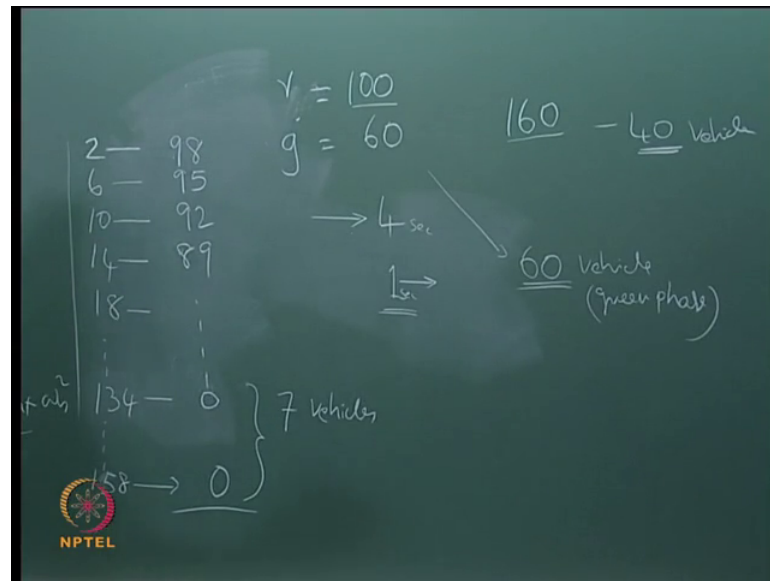 r = 100
g = 60
160 — 40 vehicle
2 — 98
6 — 95
10 — 92
14 — 89
18 —
→ 4 sec
1 sec →
60 vehicle
(green phase)
134 — 0
7 vehicles
158 → 0
NPTEL